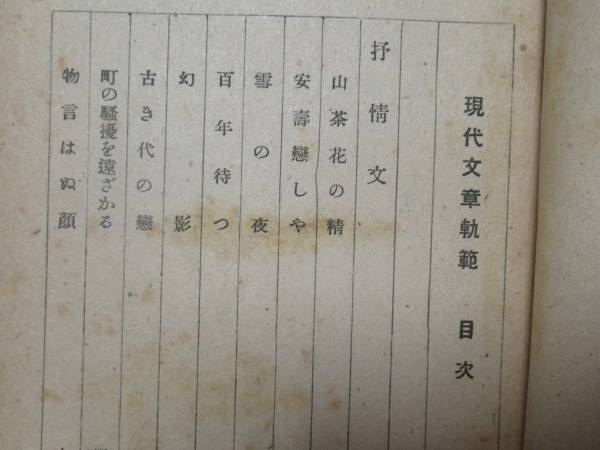 現代文章軌範 目次
抒情文
山茶花の精
安壽戀しや
雪の夜
百年待つ
幻影
古き代の戀
町の騷擾を遠ざかる
物言はぬ顏